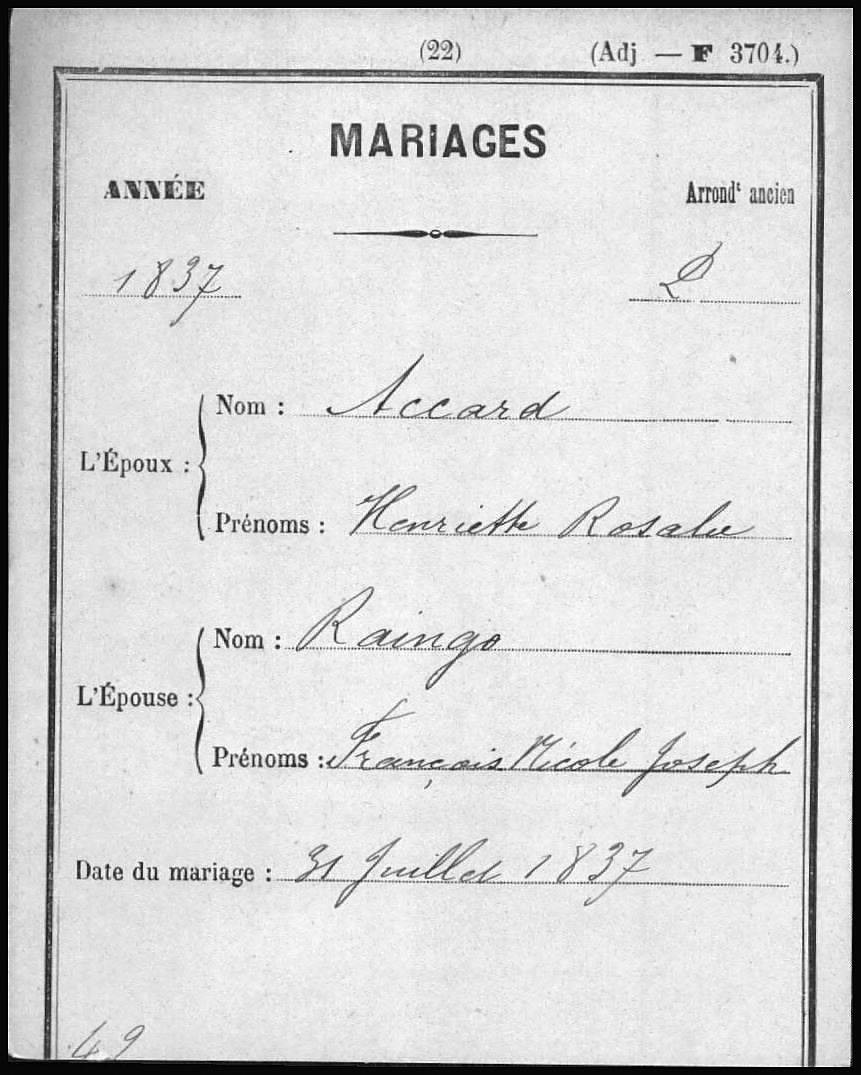 (22) (Adj — F 3704.)
MARIAGES
ANNÉE Arrondt ancien
1837 2
Nom : Accard
L'Époux :
Prénoms : Henriette Rosalie
Nom : Raingo
L'Épouse :
Prénoms : François Nicole Joseph
Date du mariage : 31 Juillet 1837
49